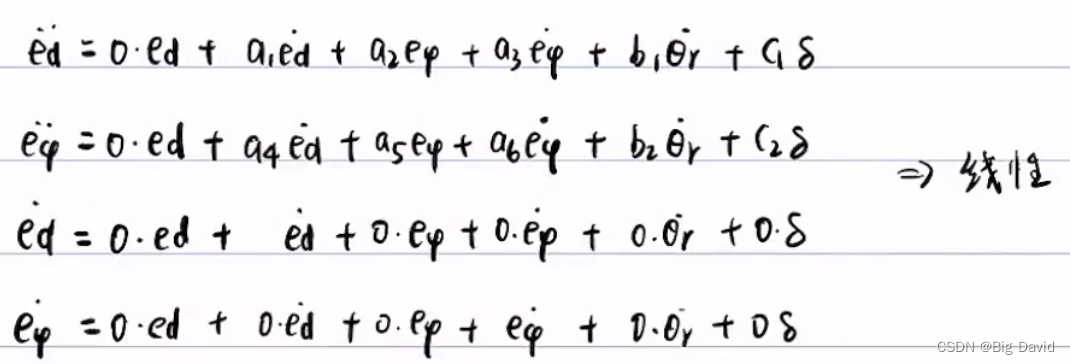 ëd = 0·ed + a₁ėd + a₂eφ + a₃ėφ + b₁θ̇r + C₁δ
ëφ = 0·ed + a₄ėd + a₅eφ + a₆ėφ + b₂θ̇r + C₂δ
⇒ 线性
ėd = 0·ed + ėd + 0·eφ + 0·ėφ + 0·θ̇r + 0·δ
ėφ = 0·ed + 0·ėd + 0·eφ + ėφ + 0·θ̇r + 0δ
CSDN @Big David